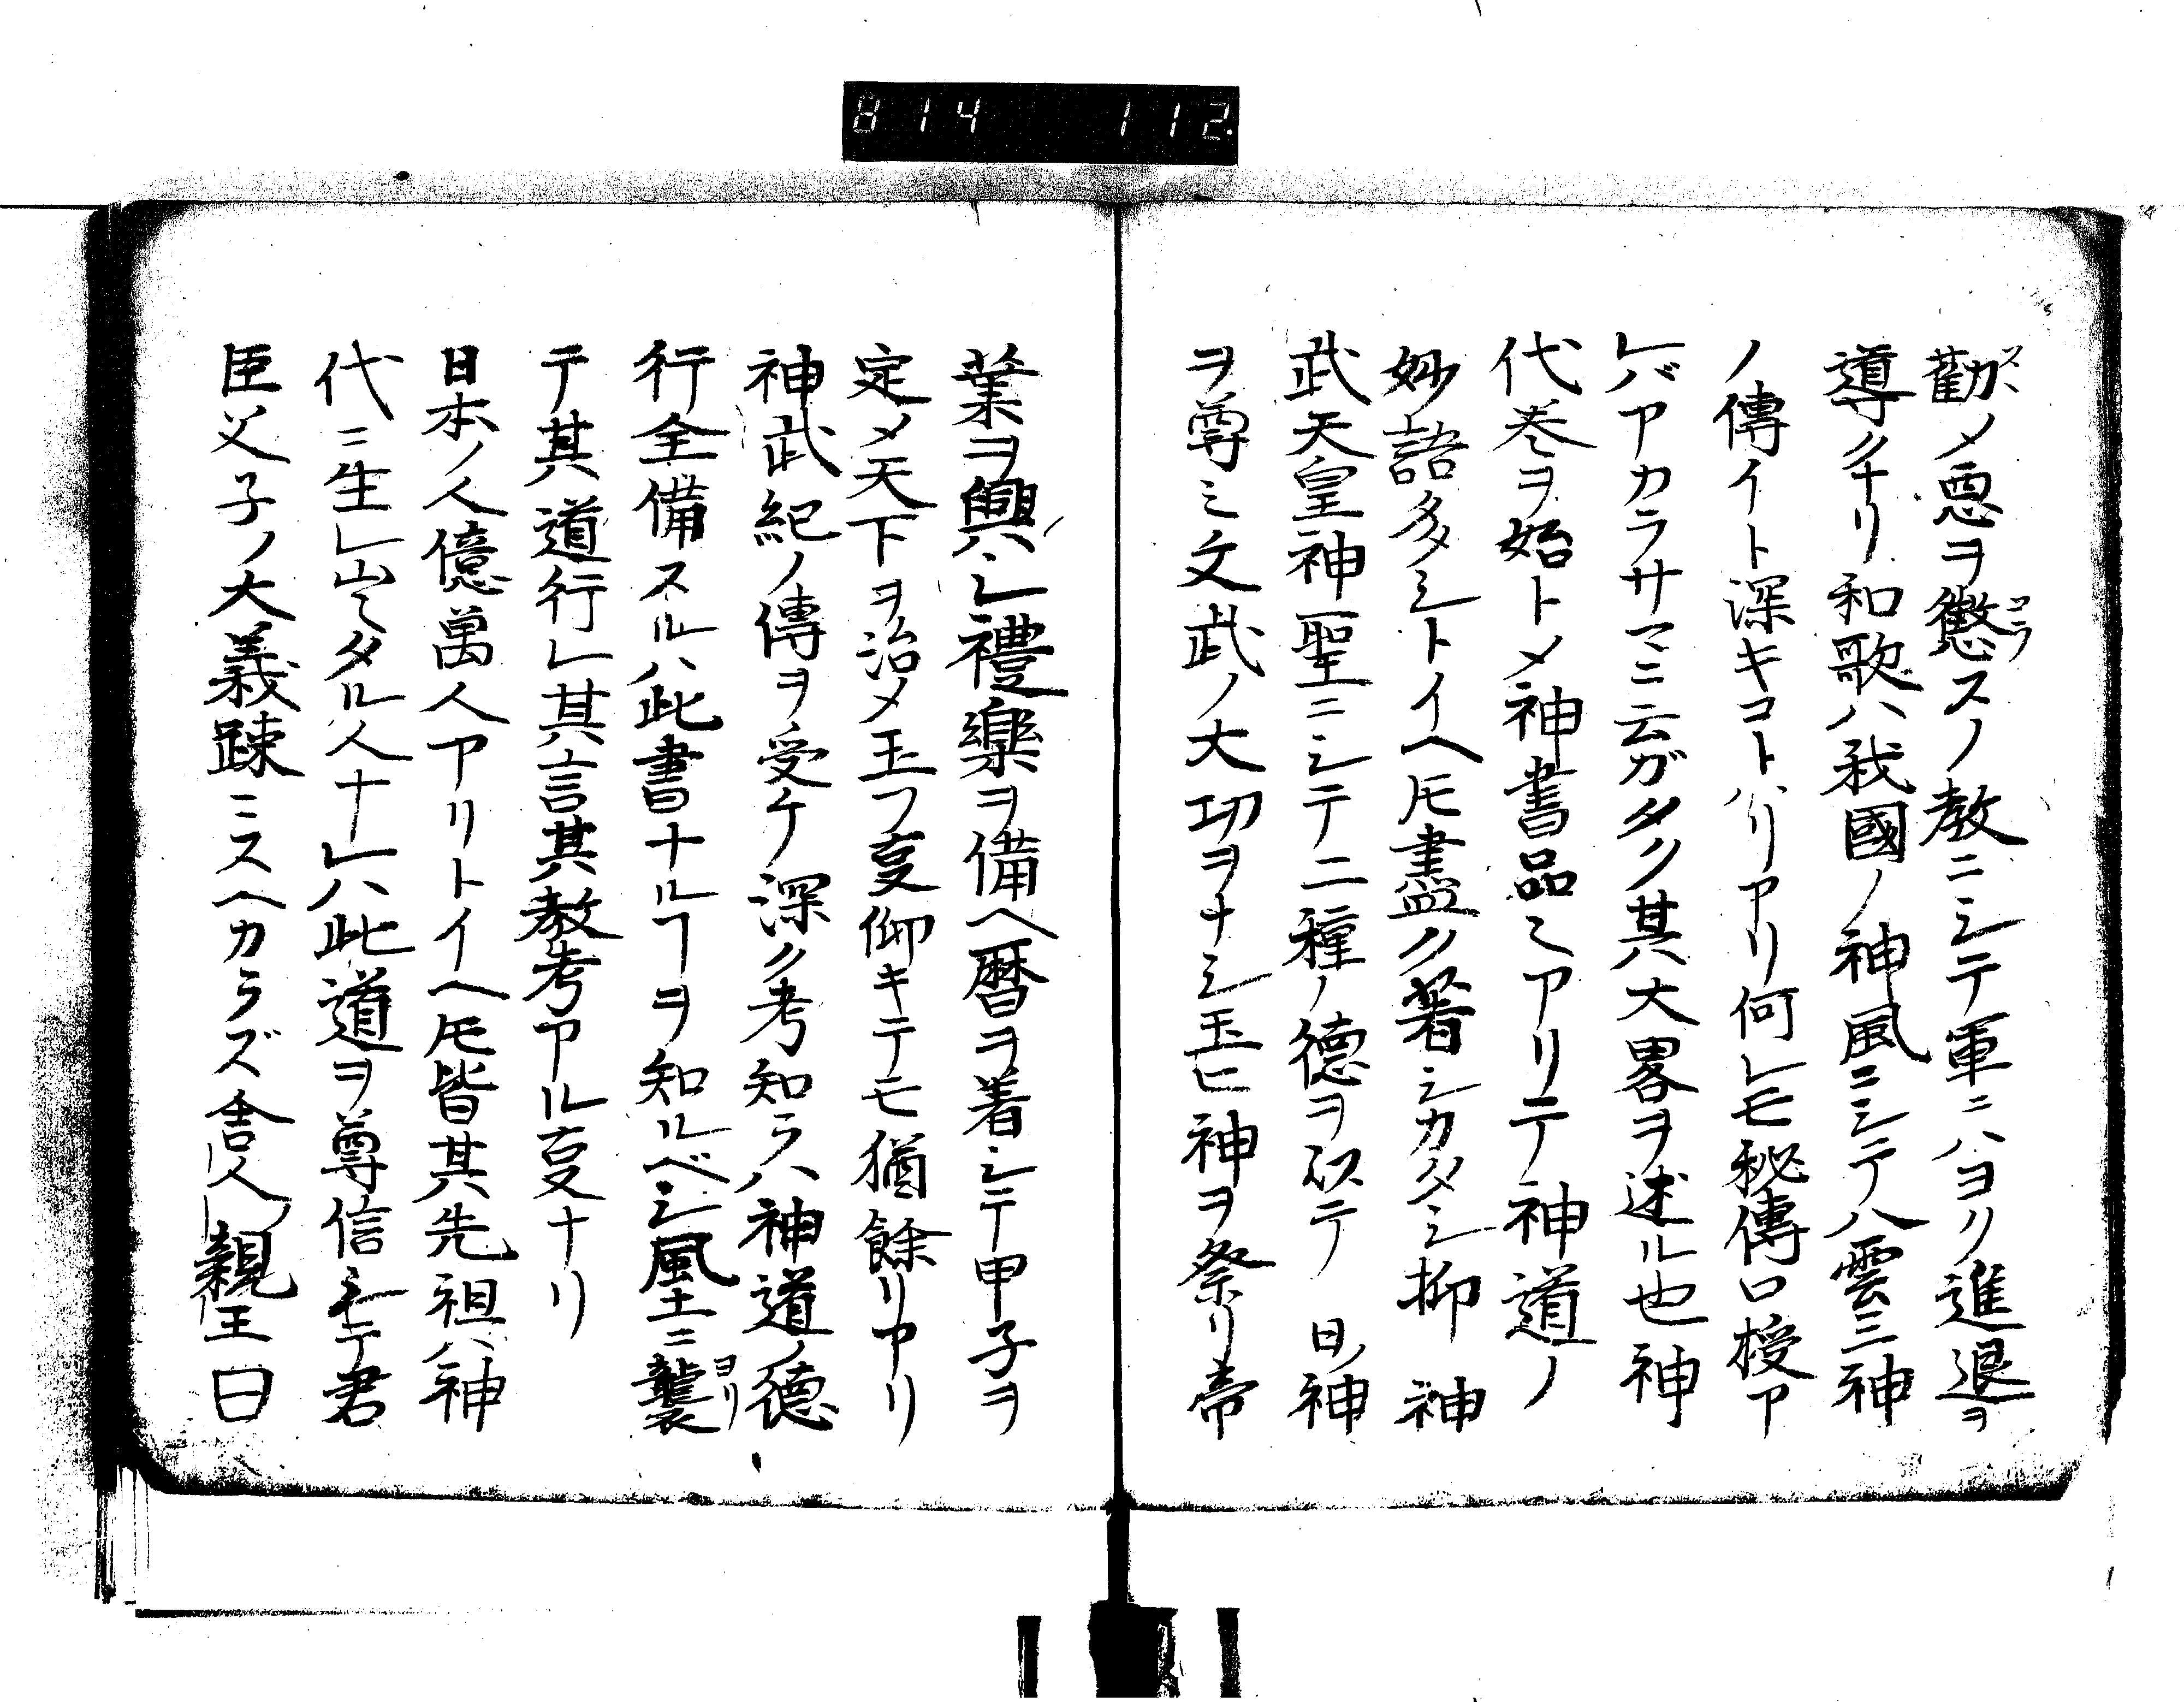 814 112.
勸メ悪ヲ懲スノ教ニシテ軍ニハヨク進退ヲ
導クナリ和歌ハ我國ノ神風ニシテ八雲三神
ノ傳イト深キコトハリアリ何レモ秘傳口授ア
レバアカラサマニ云ガタク其大畧ヲ述ル也神
代巻ヲ始トメ神書品〻アリテ神道ノ
妙語多シトイヘ𪜈盡ク著シカタシ抑神
武天皇神聖ニシテ二種ノ德ヲ以テ日ノ神
ヲ尊ミ文武ノ大功ヲナシ玉ヒ神ヲ祭リ帝
業ヲ興ハシ禮樂ヲ備ヘ暦ヲ着シテ甲子ヲ
定メ天下ヲ治メ玉フ㕝仰キテモ猶餘リアリ
神武紀ノ傳ヲ受ケ深ク考知ラハ神道ノ德
行全備スルハ此書ナルヿヲ知ルベシ風土ニ襲
テ其道行レ其言其教考アル㕝ナリ
日本ノ人億萬人アリトイヘ𪜈皆其先祖ハ神
代ニ生レ出タル人ナレハ此道ヲ尊信シテ君
臣父子ノ大義踈ニスヘカラズ舎人親王曰